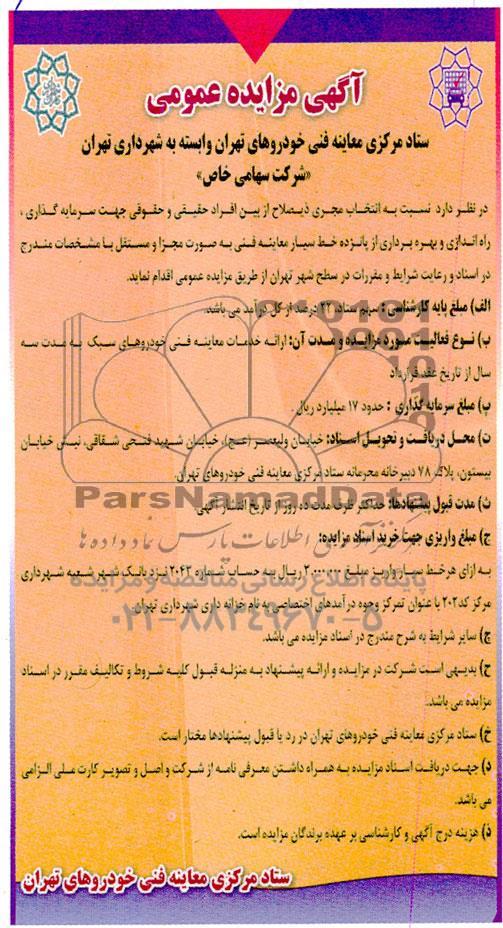 آگهی مزایده عمومی
ستاد مرکزی معاینه فنی خودروهای تهران وابسته به شهرداری تهران
«شرکت سهامی خاص»
در نظر دارد نسبت به انتخاب مجری ذیصلاح از بین افراد حقیقی و حقوقی جهت سرمایه گذاری ،
راه اندازی و بهره برداری از پانزده خط سیار معاینه فنی به صورت مجزا و مستقل با مشخصات مندرج
در اسناد و رعایت شرایط و مقررات در سطح شهر تهران از طریق مزایده عمومی اقدام نماید.
الف) مبلغ پایه کارشناسی : سهم ستاد، ۲۲ درصد از کل درآمد می باشد.
ب) نوع فعالیت مورد مزایده و مدت آن: ارائه خدمات معاینه فنی خودروهای سبک به مدت سه
سال از تاریخ عقد قرارداد
پ) مبلغ سرمایه گذاری : حدود ۱۷ میلیارد ریال .
ت) محل دریافت و تحویل اسناد: خیابان ولیعصر (عج)، خیابان شهید فتحی شقاقی، نبش خیابان
بیستون، پلاک ۷۸ دبیرخانه محرمانه ستاد مرکزی معاینه فنی خودروهای تهران.
ParsNamadData
ث) مدت قبول پیشنهادها: حداکثر ظرف مدت ده روز از تاریخ انتشار آگهی.
ج) مبلغ واریزی جهت خرید اسناد مزایده:
به ازای هر خط سیار واریز مبلغ ۲،۰۰۰،۰۰۰ ریال به حساب شماره ۲۰۴۳ نزد بانک شهر شعبه شهرداری
پایگاه اطلاع رسانی مناقصه و مزایده
مرکز کد ۲۰۲ با عنوان تمرکز وجوه درآمدهای اختصاصی به نام خزانه داری شهرداری تهران
۰۲۱-۸۸۳۴۹۶۷۰-۵
چ) سایر شرایط به شرح مندرج در اسناد مزایده می باشد.
ح) بدیهی است شرکت در مزایده و ارائه پیشنهاد به منزله قبول کلیه شروط و تکالیف مقرر در اسناد
مزایده می باشد.
خ) ستاد مرکزی معاینه فنی خودروهای تهران در رد یا قبول پیشنهادها مختار است.
د) جهت دریافت اسناد مزایده به همراه داشتن معرفی نامه از شرکت و اصل و تصویر کارت ملی الزامی
می باشد.
ذ) هزینه درج آگهی و کارشناسی بر عهده برندگان مزایده است.
ستاد مرکزی معاینه فنی خودروهای تهران